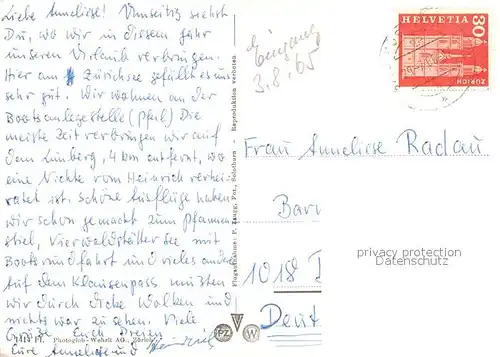 Liebe Anneliese! Umseitig siehst
Du, wo wir in diesem Jahr
unseren Urlaub verbringen.
Hier am Zürichsee gefällt es uns
sehr gut. Wir wohnen an der
Bootsanlegestelle (Pfeil) Die
meiste Zeit verbringen wir auf
dem Limberg, 4 km entfernt, wo
eine Nichte vom Heinrich verhei-
ratet ist. Schöne Ausflüge haben
wir schon gemacht zum Pfannen-
stiel, Vierwaldstätter See mit
Bootsrundfahrt und vieles andere
Auf dem Klausenpass mußten
wir durch dicke Wolken und
nichts war zu sehen. Viele
Grüße Euch Dreien
Eure Anneliese und Heinrich
Photoglob-Wehrli AG., Zürich
Flugaufnahme: F. Zaugg, Fot., Solothurn - Reproduktion verboten
Eingang
3.8.65
HELVETIA
30
ZÜRICH
Frau Anneliese Radau
Bar
privacy protection
Datenschutz
1018
Deut
PZ
W